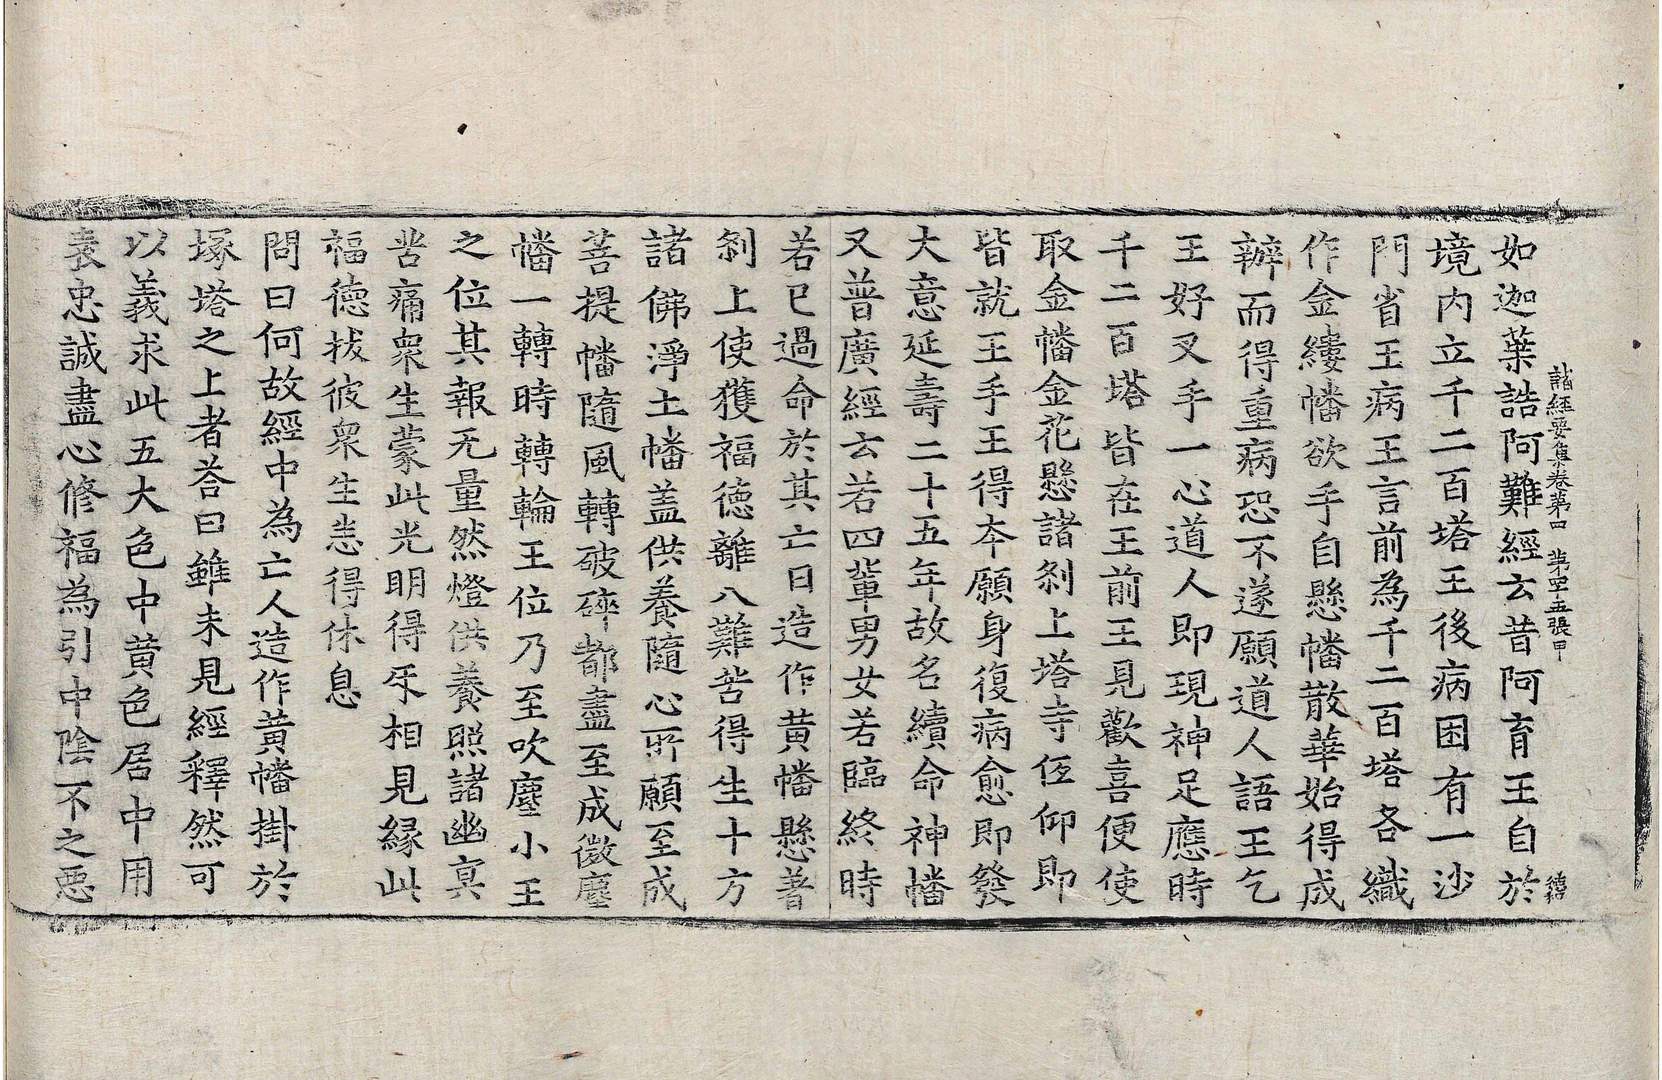 諸經要集卷第四　第四十五張甲
如迦葉詰阿難經云昔阿育王自於
境内立千二百塔王後病困有一沙
門省王病王言前為千二百塔各織
作金縷幡欲手自懸幡散華始得成
辦而得重病恐不遂願道人語王乞
王好叉手一心道人即現神足應時
千二百塔皆在王前王見歡喜便使
取金幡金花懸諸刹上塔寺伍仰即
皆就王手王得夲願身復病愈即發
大意延壽二十五年故名續命神幡
又普廣經云若四軰男女若臨終時
若已過命於其亡日造作黄幡懸著
刹上使獲福德離八難苦得生十方
諸佛淨土幡盖供養隨心所願至成
菩提幡隨風轉破碎都盡至成微塵
幡一轉時轉輪王位乃至吹塵小王
之位其報无量然燈供養照諸幽冥
苦痛衆生蒙此光明得牙相見緣此
福德拔彼衆生悉得休息
問曰何故經中為亡人造作黄幡掛於
塚塔之上者荅曰雖未見經釋然可
以義求此五大色中黄色居中用
表忠誠盡心修福為引中陰不之惡